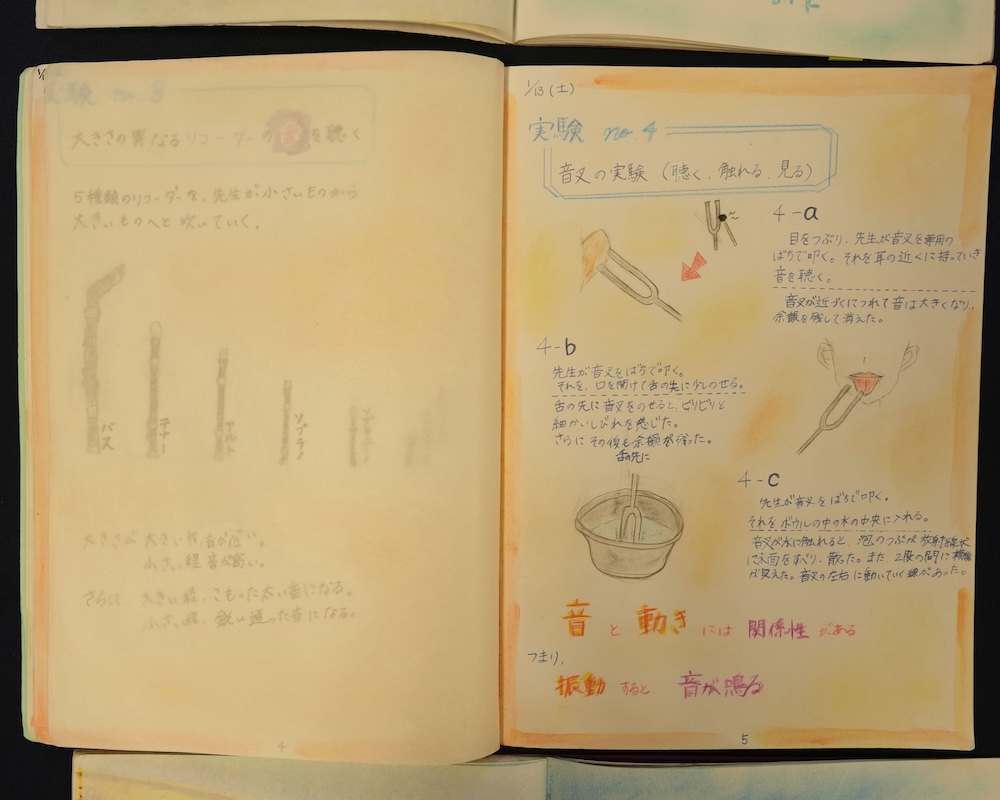 実験 no.3
大きさの異なるリコーダーの音を聴く
5種類のリコーダーを、先生が小さいものから
大きいものへと吹いていく。
バス
テナー
アルト
ソプラノ
大きさが 大きい程 音が低い。
小さい程 音が高い。
さらに、大きい程、こもった太い音になる。
小さい程、鋭い透った音になる。
4
1/13(土)
実験 no.4
音叉の実験(聴く、触れる、見る)
4-a
目をつぶり、先生が音叉を専用の
ばちで叩く。それを耳の近くに持っていき
音を聴く。
音叉が近づくにつれて音は大きくなり、
余韻を残して消えた。
4-b
先生が音叉をばちで叩く。
それを、口を開けて舌の先に少しのせる。
舌の先に音叉をのせると、ビリビリと
細かいしびれを感じた。
さらにその後も余韻が残った。
舌の先に
4-c
先生が音叉をばちで叩く。
それをボウルの中の水の中央に入れる。
音叉が水に触れると、泡のつぶが放射線状
に水面をすべり、散った。また、2股の間に
が見えた。音叉の左右に動いていく線があった。
音と動きには関係性がある
つまり、
振動すると 音が鳴る
5